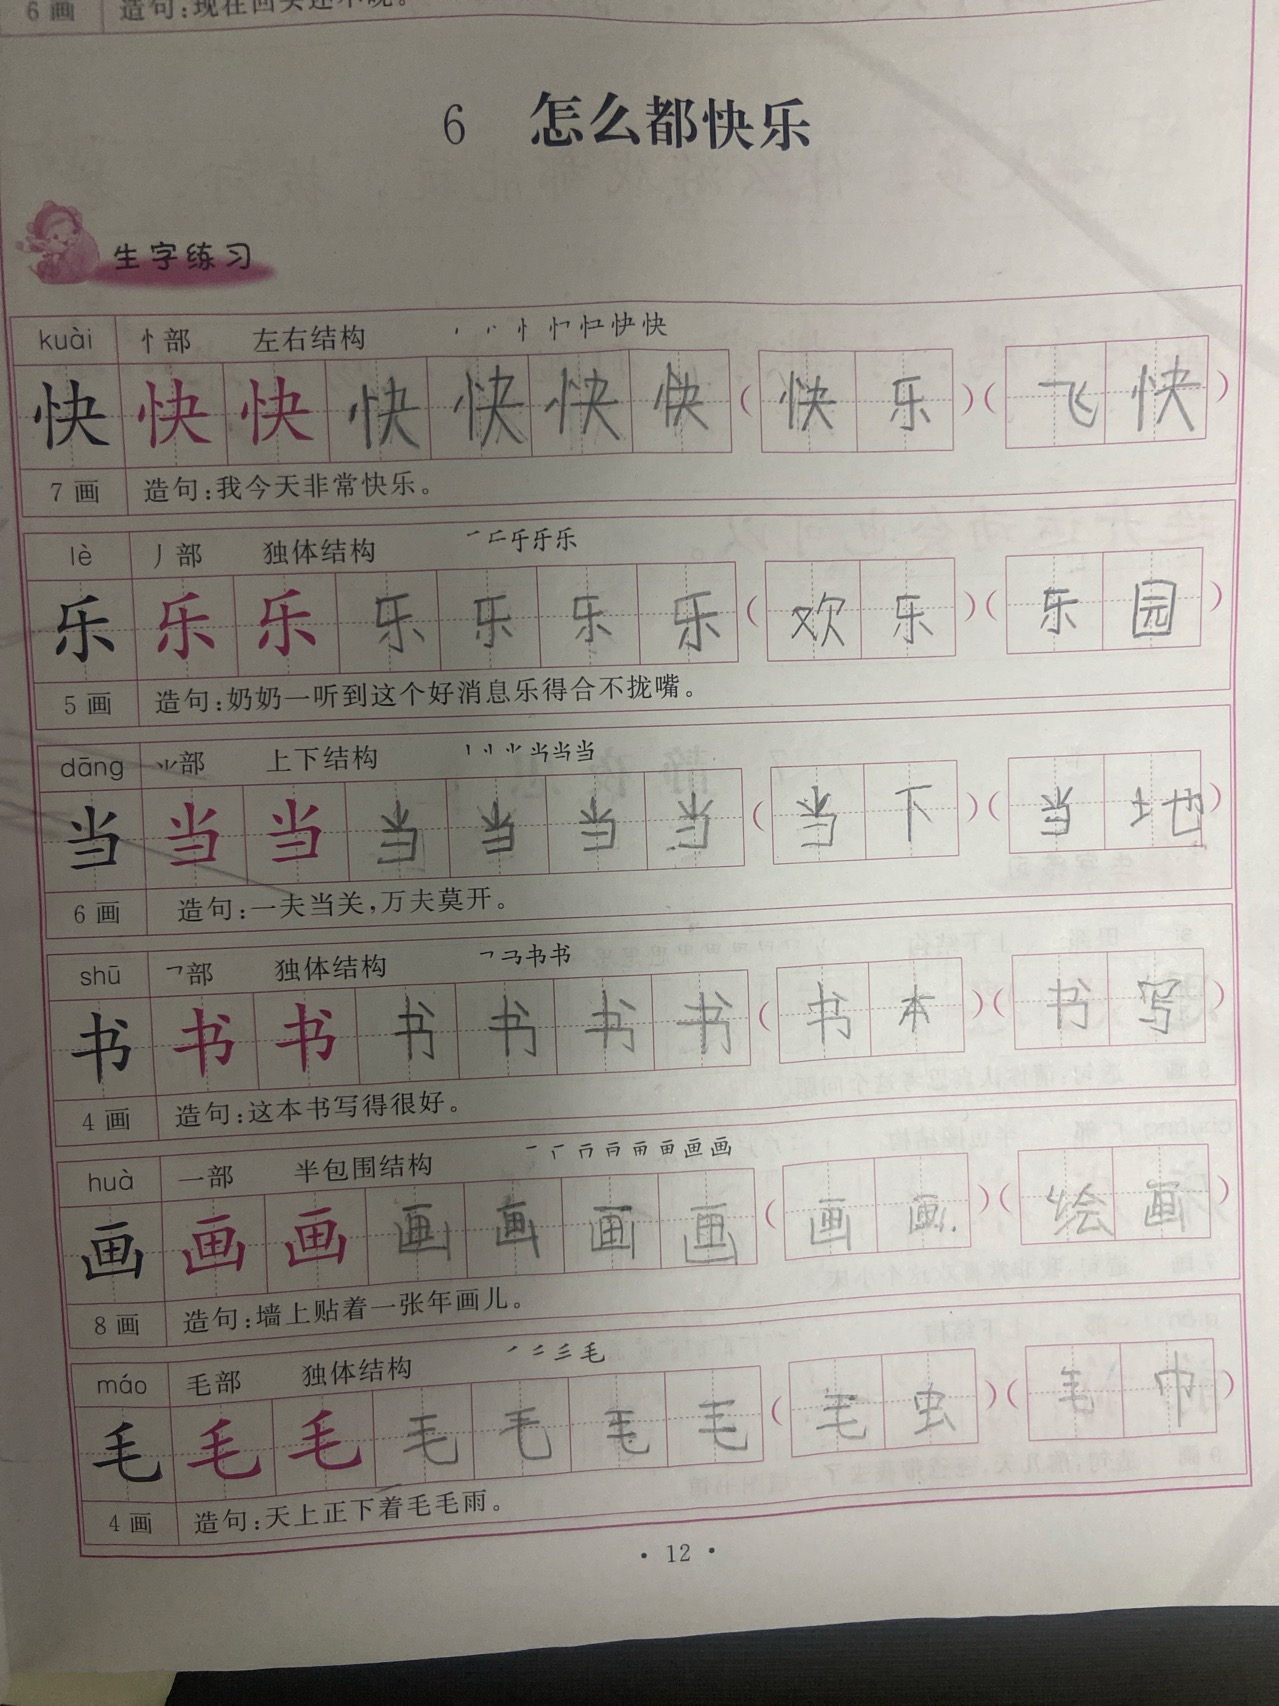 6画 造句:现在回头还不晚。
6 怎么都快乐
生字练习
kuài 忄部 左右结构
快 快 快 快 快 快 快 (快乐)(飞快)
7画 造句:我今天非常快乐。
lè 丿部 独体结构
乐 乐 乐 乐 乐 乐 乐 (欢乐)(乐园)
5画 造句:奶奶一听到这个好消息乐得合不拢嘴。
dāng ⺌部 上下结构
当 当 当 当 当 当 当 (当下)(当地)
6画 造句:一夫当关,万夫莫开。
shū 乛部 独体结构
书 书 书 书 书 书 书 (书本)(书写)
4画 造句:这本书写得很好。
huà 一部 半包围结构
画 画 画 画 画 画 画 (画画)(绘画)
8画 造句:墙上贴着一张年画儿。
máo 毛部 独体结构
毛 毛 毛 毛 毛 毛 毛 (毛虫)(毛巾)
4画 造句:天上正下着毛毛雨。
· 12 ·